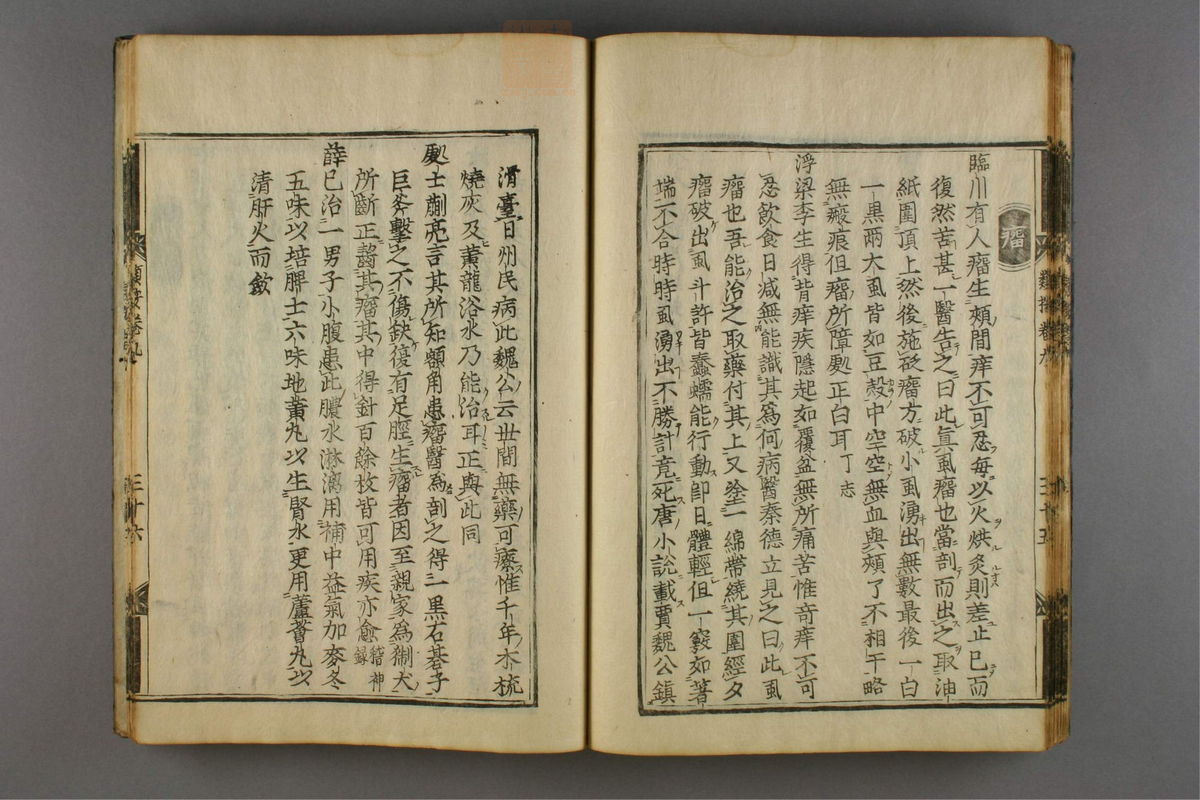 瘤
臨川有人瘤生頰間痒不可忍每以火烘灸則差止已而
復然苦甚一醫告之曰此眞虱瘤也當剖而出之取油
紙圍頂上然後施砭瘤方破小虱湧出無數最後一白
一黑兩大虱皆如豆殼中空空無血與頰了不相干略
無瘢痕但瘤所障處正白耳丁志
浮梁李生得背痒疾隱起如覆盆無所痛苦惟奇痒不可
忍飲食日減無能識其為何病醫秦德立見之曰此虱
瘤也吾能治之取藥付其上又塗一綿帶繞其圍經夕
瘤破出虱斗許皆蠢蠕能行動卽日體輕但一竅如著
端不合時時虱湧出不勝計竟死唐小說載賈魏公鎮
類按卷九
三十五
滑臺日州民病此魏公云世間無藥可療惟千年木梳
燒灰及黃龍浴水乃能治耳正與此同
處士蒯亮言其所知額角患瘤醫為剖之得一黑石碁子
巨斧擊之不傷缺復有足脛生瘤者因至親家為猘犬
所斷正齧其瘤其中得針百餘枚皆可用疾亦愈稽神錄
薛已治一男子小腹患此膿水淋漓用補中益氣加麥冬
五味以培脾土六味地黃丸以生腎水更用蘆薈丸以
清肝火而斂
類按卷九
三十六